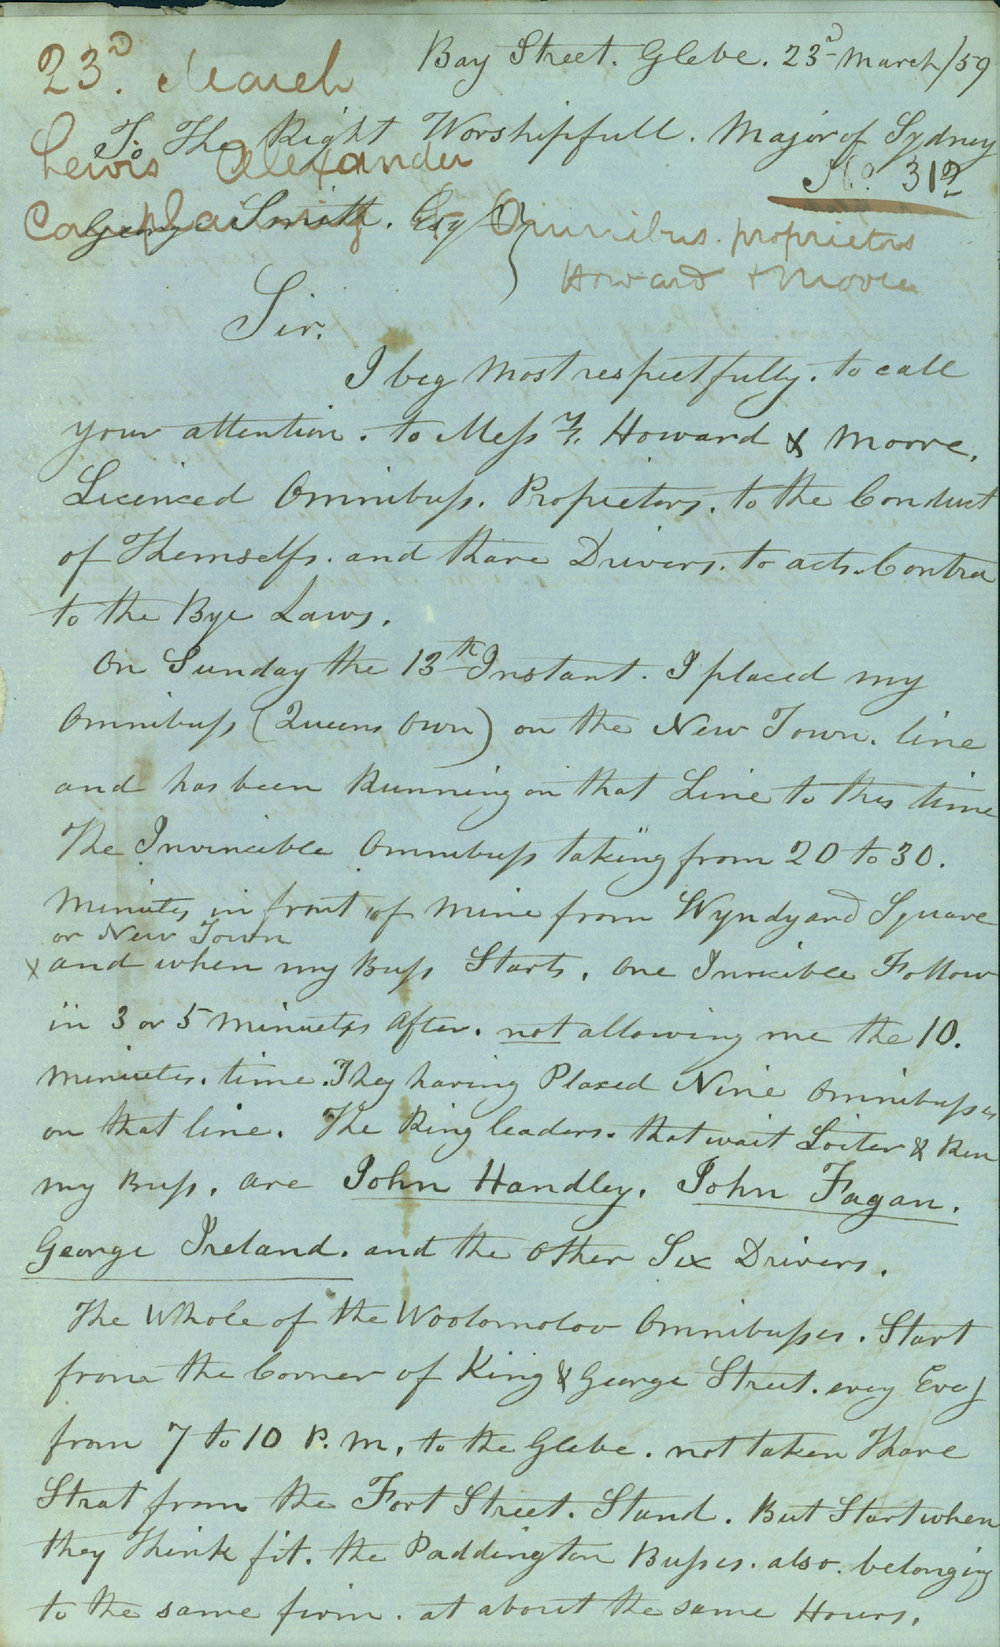 Bay Street. Glebe. 23rd March/59
23d. March
To The Right Worshipfull. Major of Sydney
Lewis Alexander
No. 312
George Smith. Esq
Complaining Omnibus proprietors
Howard & Moore
Sir.
I beg Most respectfully. to call
your attention. to Messrs. Howard & Moore.
Licenced Omnibuss. Proprietors. to the Conduct
of Themselfs. and thare Drivers. to acts. Contra
to the Bye Laws.
On Sunday the 13th Instant. I placed my
Omnibuss (Queens Own) on the New Town. line
and has been Running on that Line to this time
The Invincible Omnibuss taking from 20 to 30.
Minutes in front of mine from Wyndyard Square
or New Town
x and when my Buss Starts. One Invicible Follow
in 3 or 5 Minuetes After. not allowing me the 10.
Miniutes. time. They having Placed Nine Omnibusses
on that line. The Ring leaders. that wait Loiter & Run
my Buss. are John Handley. John Fagan.
George Ireland. and the Other Six Drivers.
The Whole of the Woolomoloo Omnibusses. Start
from the Corner of King & George Street. evey Eveg
from 7 to 10 P.M. to the Glebe. not taken Thare
Strat from the Fort Street. Stand. But Start when
they think fit. the Paddington Busses. also. belonging
to the same firm. at about the same Hours.